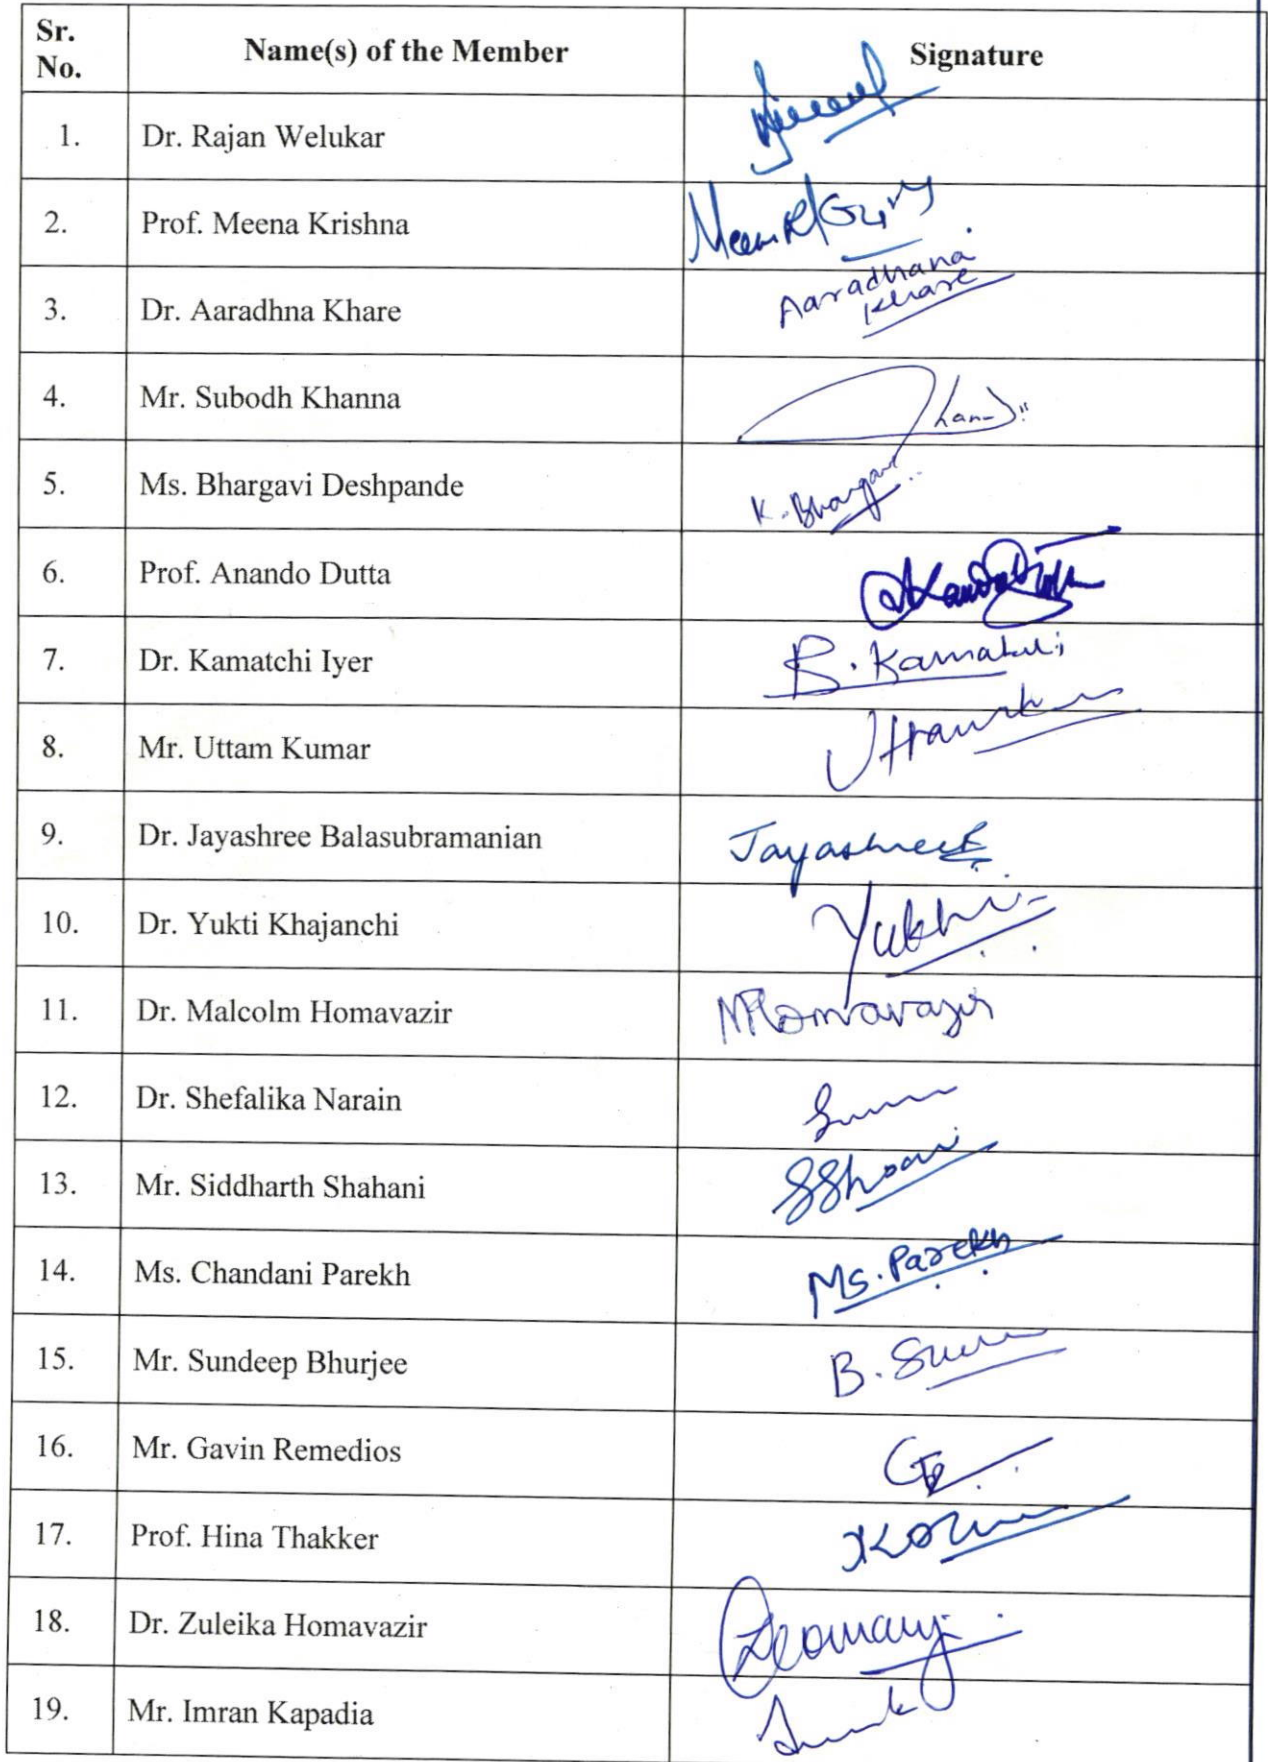 Sr. No. Name(s) of the Member Signature
1. Dr. Rajan Welukar
2. Prof. Meena Krishna
3. Dr. Aaradhna Khare Aaradhana Khare
4. Mr. Subodh Khanna
5. Ms. Bhargavi Deshpande K. Bhargavi
6. Prof. Anando Dutta
7. Dr. Kamatchi Iyer B. Kamatchi
8. Mr. Uttam Kumar
9. Dr. Jayashree Balasubramanian Jayashree
10. Dr. Yukti Khajanchi Yukti
11. Dr. Malcolm Homavazir MHomavazir
12. Dr. Shefalika Narain
13. Mr. Siddharth Shahani
14. Ms. Chandani Parekh Ms. Parekh
15. Mr. Sundeep Bhurjee
16. Mr. Gavin Remedios
17. Prof. Hina Thakker
18. Dr. Zuleika Homavazir
19. Mr. Imran Kapadia